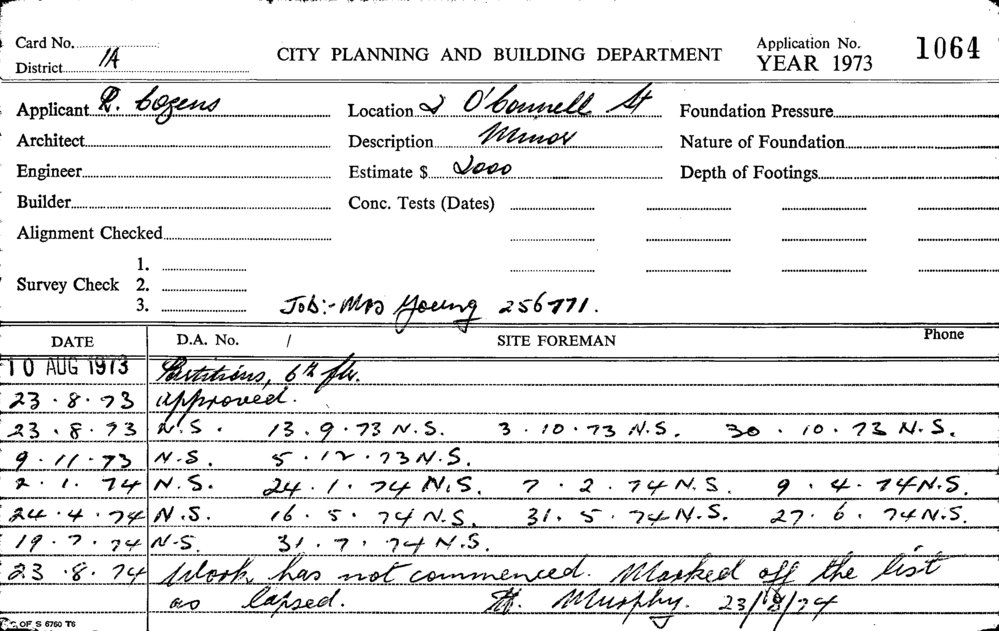 Card No. CITY PLANNING AND BUILDING DEPARTMENT Application No. 1064
District 1A YEAR 1973
Applicant R. Cozens Location 2 O'Connell St Foundation Pressure
Architect Description Minor Nature of Foundation
Engineer Estimate $ 2000 Depth of Footings
Builder Conc. Tests (Dates)
Alignment Checked
1.
Survey Check 2.
3. Job:- Mrs Young 256771.
DATE D.A. No. / SITE FOREMAN Phone
10 AUG 1973 Partitions, 6th flr.
23.8.73 approved.
23.8.73 N.S. 13.9.73 N.S. 3.10.73 N.S. 30.10.73 N.S.
9.11.73 N.S. 5.12.73 N.S.
2.1.74 N.S. 24.1.74 N.S. 7.2.74 N.S. 9.4.74 N.S.
24.4.74 N.S. 16.5.74 N.S. 31.5.74 N.S. 27.6.74 N.S.
19.7.74 N.S. 31.7.74 N.S.
23.8.74 Work has not commenced. Marked off the list
as lapsed. H. Murphy. 23/8/74
C OF S 6760 T6